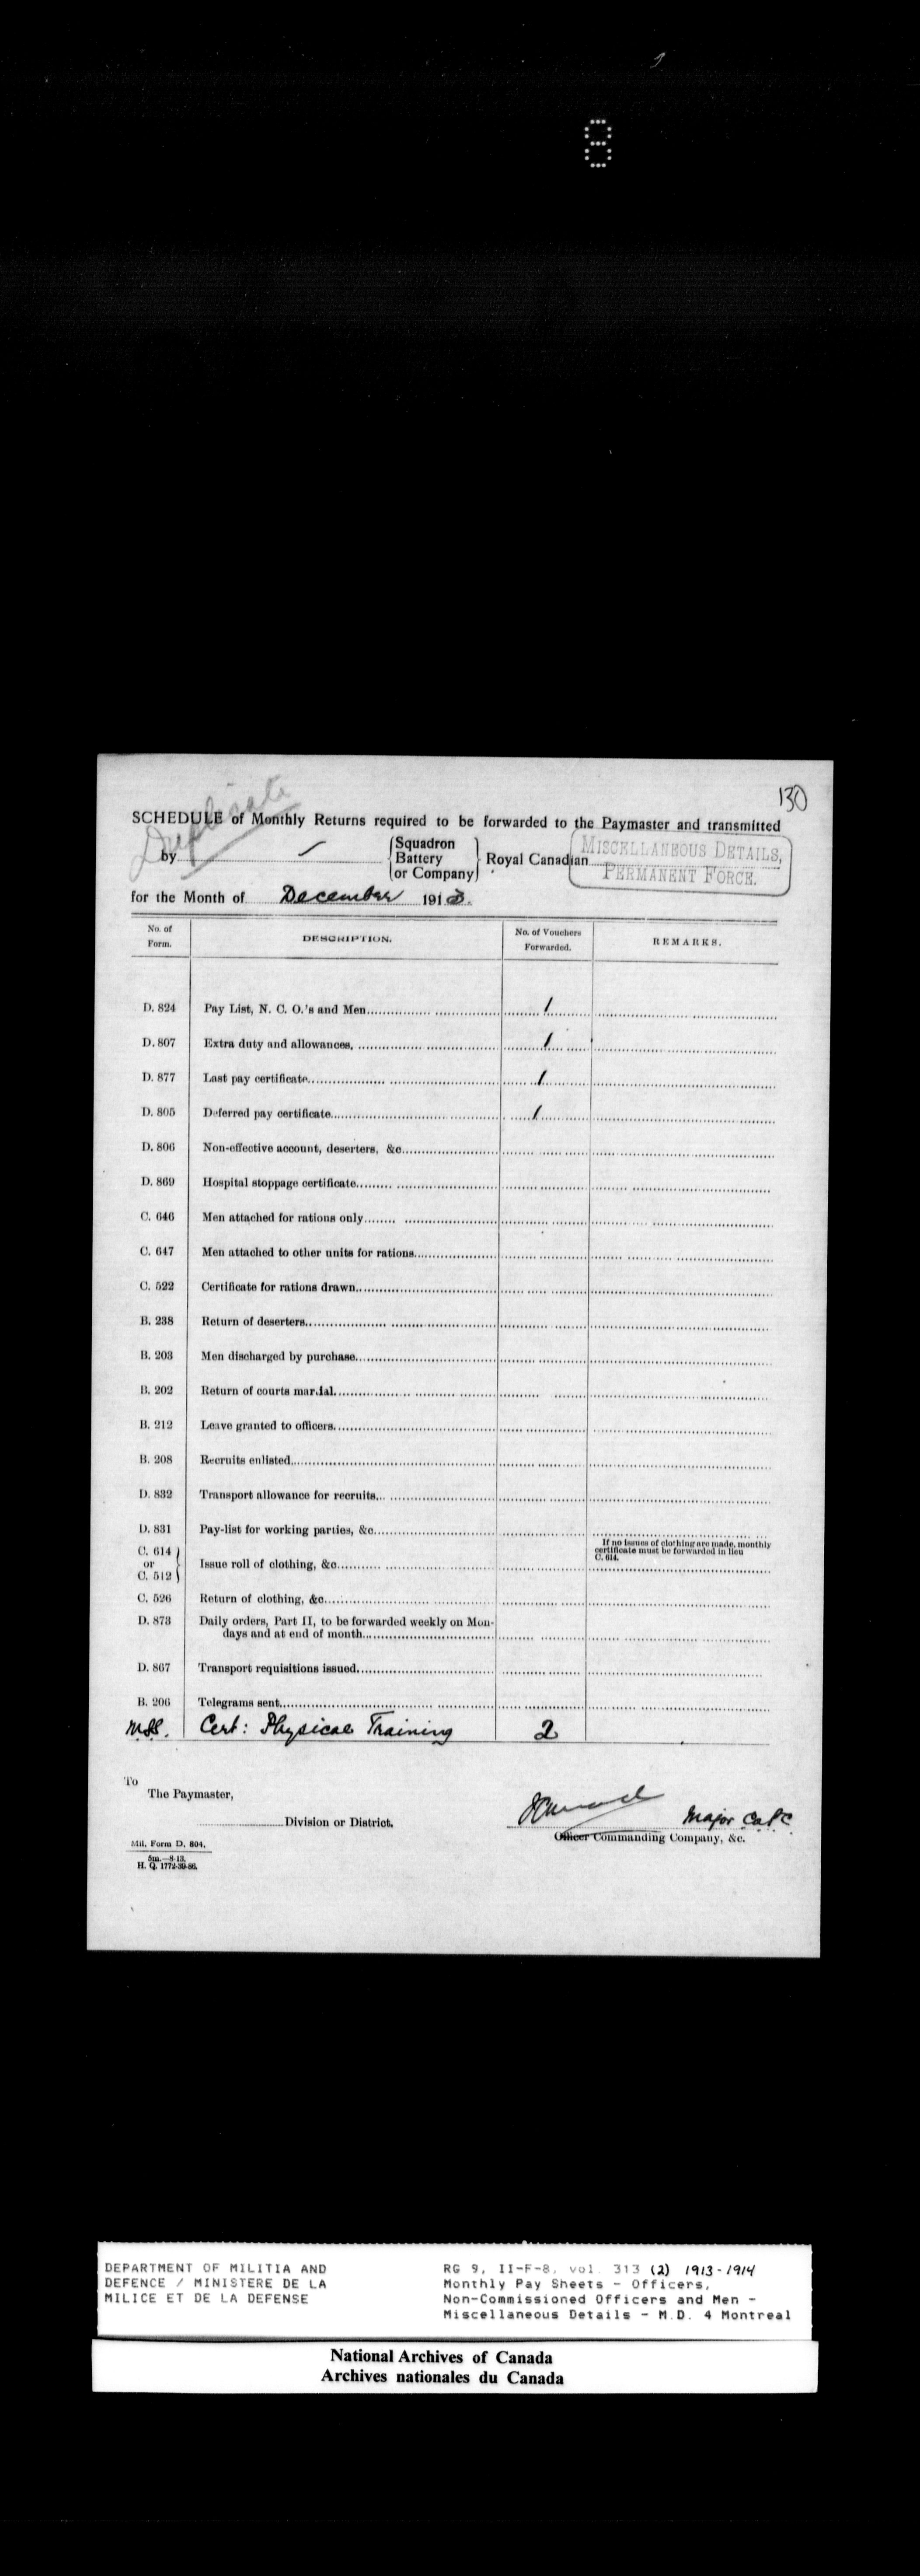 8
130
Duplicate
SCHEDULE of Monthly Returns required to be forwarded to the Paymaster and transmitted
by Squadron Battery or Company Royal Canadian MISCELLANEOUS DETAILS, PERMANENT FORCE.
for the Month of December 1913.
No. of Form. DESCRIPTION. No. of Vouchers Forwarded. REMARKS.
D. 824 Pay List, N. C. O.'s and Men 1
D. 807 Extra duty and allowances, 1
D. 877 Last pay certificate 1
D. 805 Deferred pay certificate 1
D. 806 Non-effective account, deserters, &c
D. 869 Hospital stoppage certificate
C. 646 Men attached for rations only
C. 647 Men attached to other units for rations
C. 522 Certificate for rations drawn
B. 238 Return of deserters
B. 203 Men discharged by purchase
B. 202 Return of courts martial
B. 212 Leave granted to officers
B. 208 Recruits enlisted
D. 832 Transport allowance for recruits
D. 831 Pay-list for working parties, &c
C. 614 or C. 512 Issue roll of clothing, &c If no issues of clothing are made, monthly certificate must be forwarded in lieu C. 614.
C. 526 Return of clothing, &c
D. 873 Daily orders, Part II, to be forwarded weekly on Mon-
days and at end of month
D. 867 Transport requisitions issued
B. 206 Telegrams sent
Cert: Physical Training 2
To
The Paymaster,
Division or District.
Major CAPC
Officer Commanding Company, &c.
Mil. Form D. 804.
5m.—8-13.
H. Q. 1772-39-86.
DEPARTMENT OF MILITIA AND
DEFENCE / MINISTERE DE LA
MILICE ET DE LA DEFENSE
RG 9, II-F-8, vol. 313 (2) 1913-1914
Monthly Pay Sheets - Officers,
Non-Commissioned Officers and Men -
Miscellaneous Details - M.D. 4 Montreal
National Archives of Canada
Archives nationales du Canada